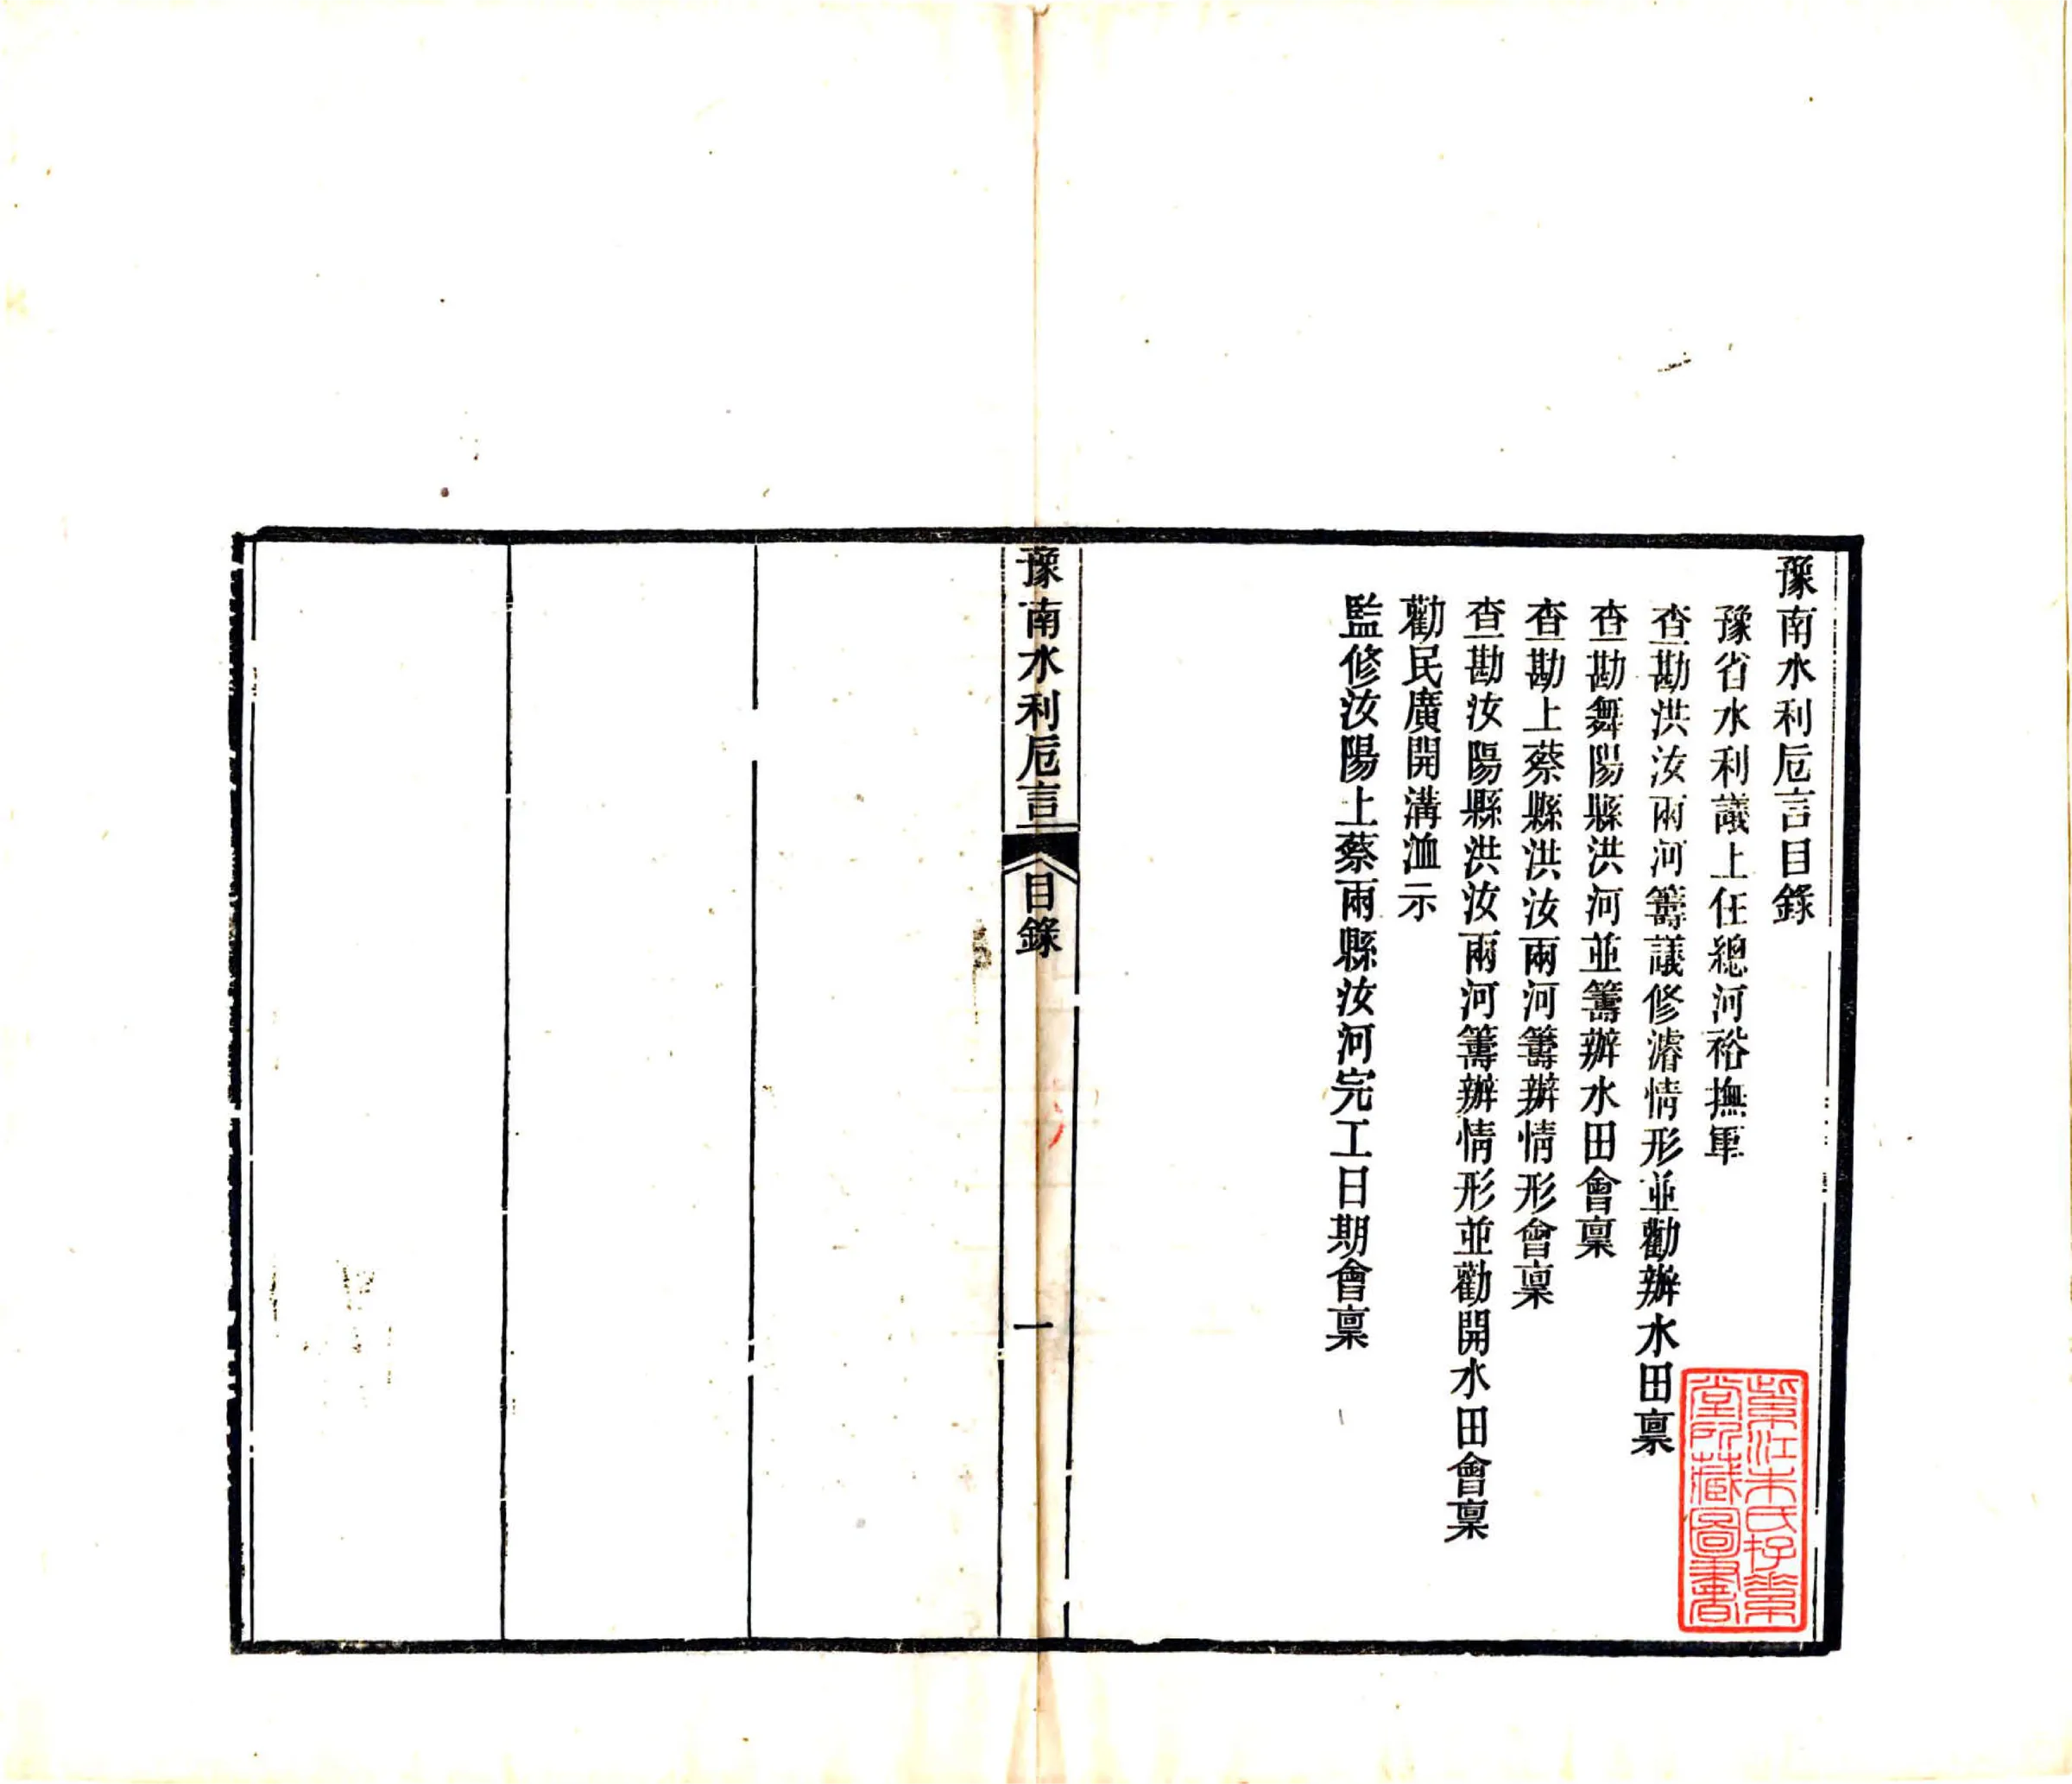 豫南水利卮言目錄
豫省水利議上任總河裕撫軍
查勘洪汝兩河籌議修濬情形並勸辦水田稟
查勘舞陽縣洪河並籌辦水田會稟
查勘上蔡縣洪汝兩河籌辦情形會稟
查勘汝陽縣洪汝兩河籌辦情形並勸開水田會稟
勸民廣開溝洫示
監修汝陽上蔡兩縣汝河完工日期會稟
豫南水利卮言
目錄
一
江朱氏
堂所藏圖書